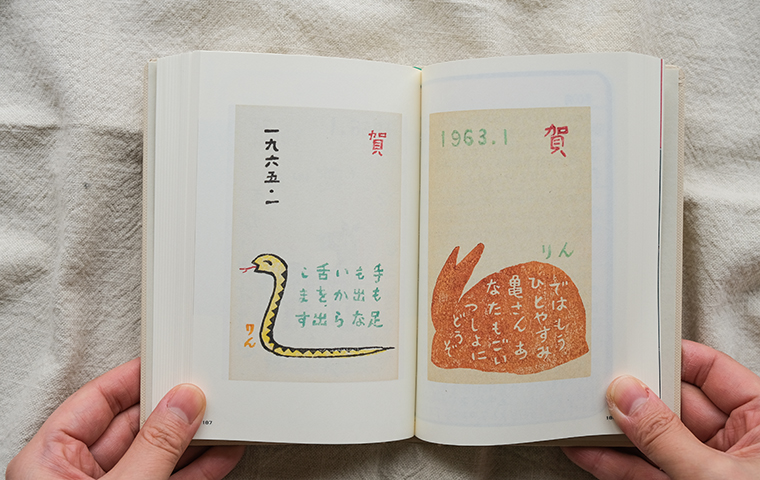 賀
1963.1
りん
ではもう
ひとやすみ
亀さん あ
なたもごい
つしょに
どうぞ
賀
一九六五・一
手も足
も出な
いから
舌を出
します
りん
187